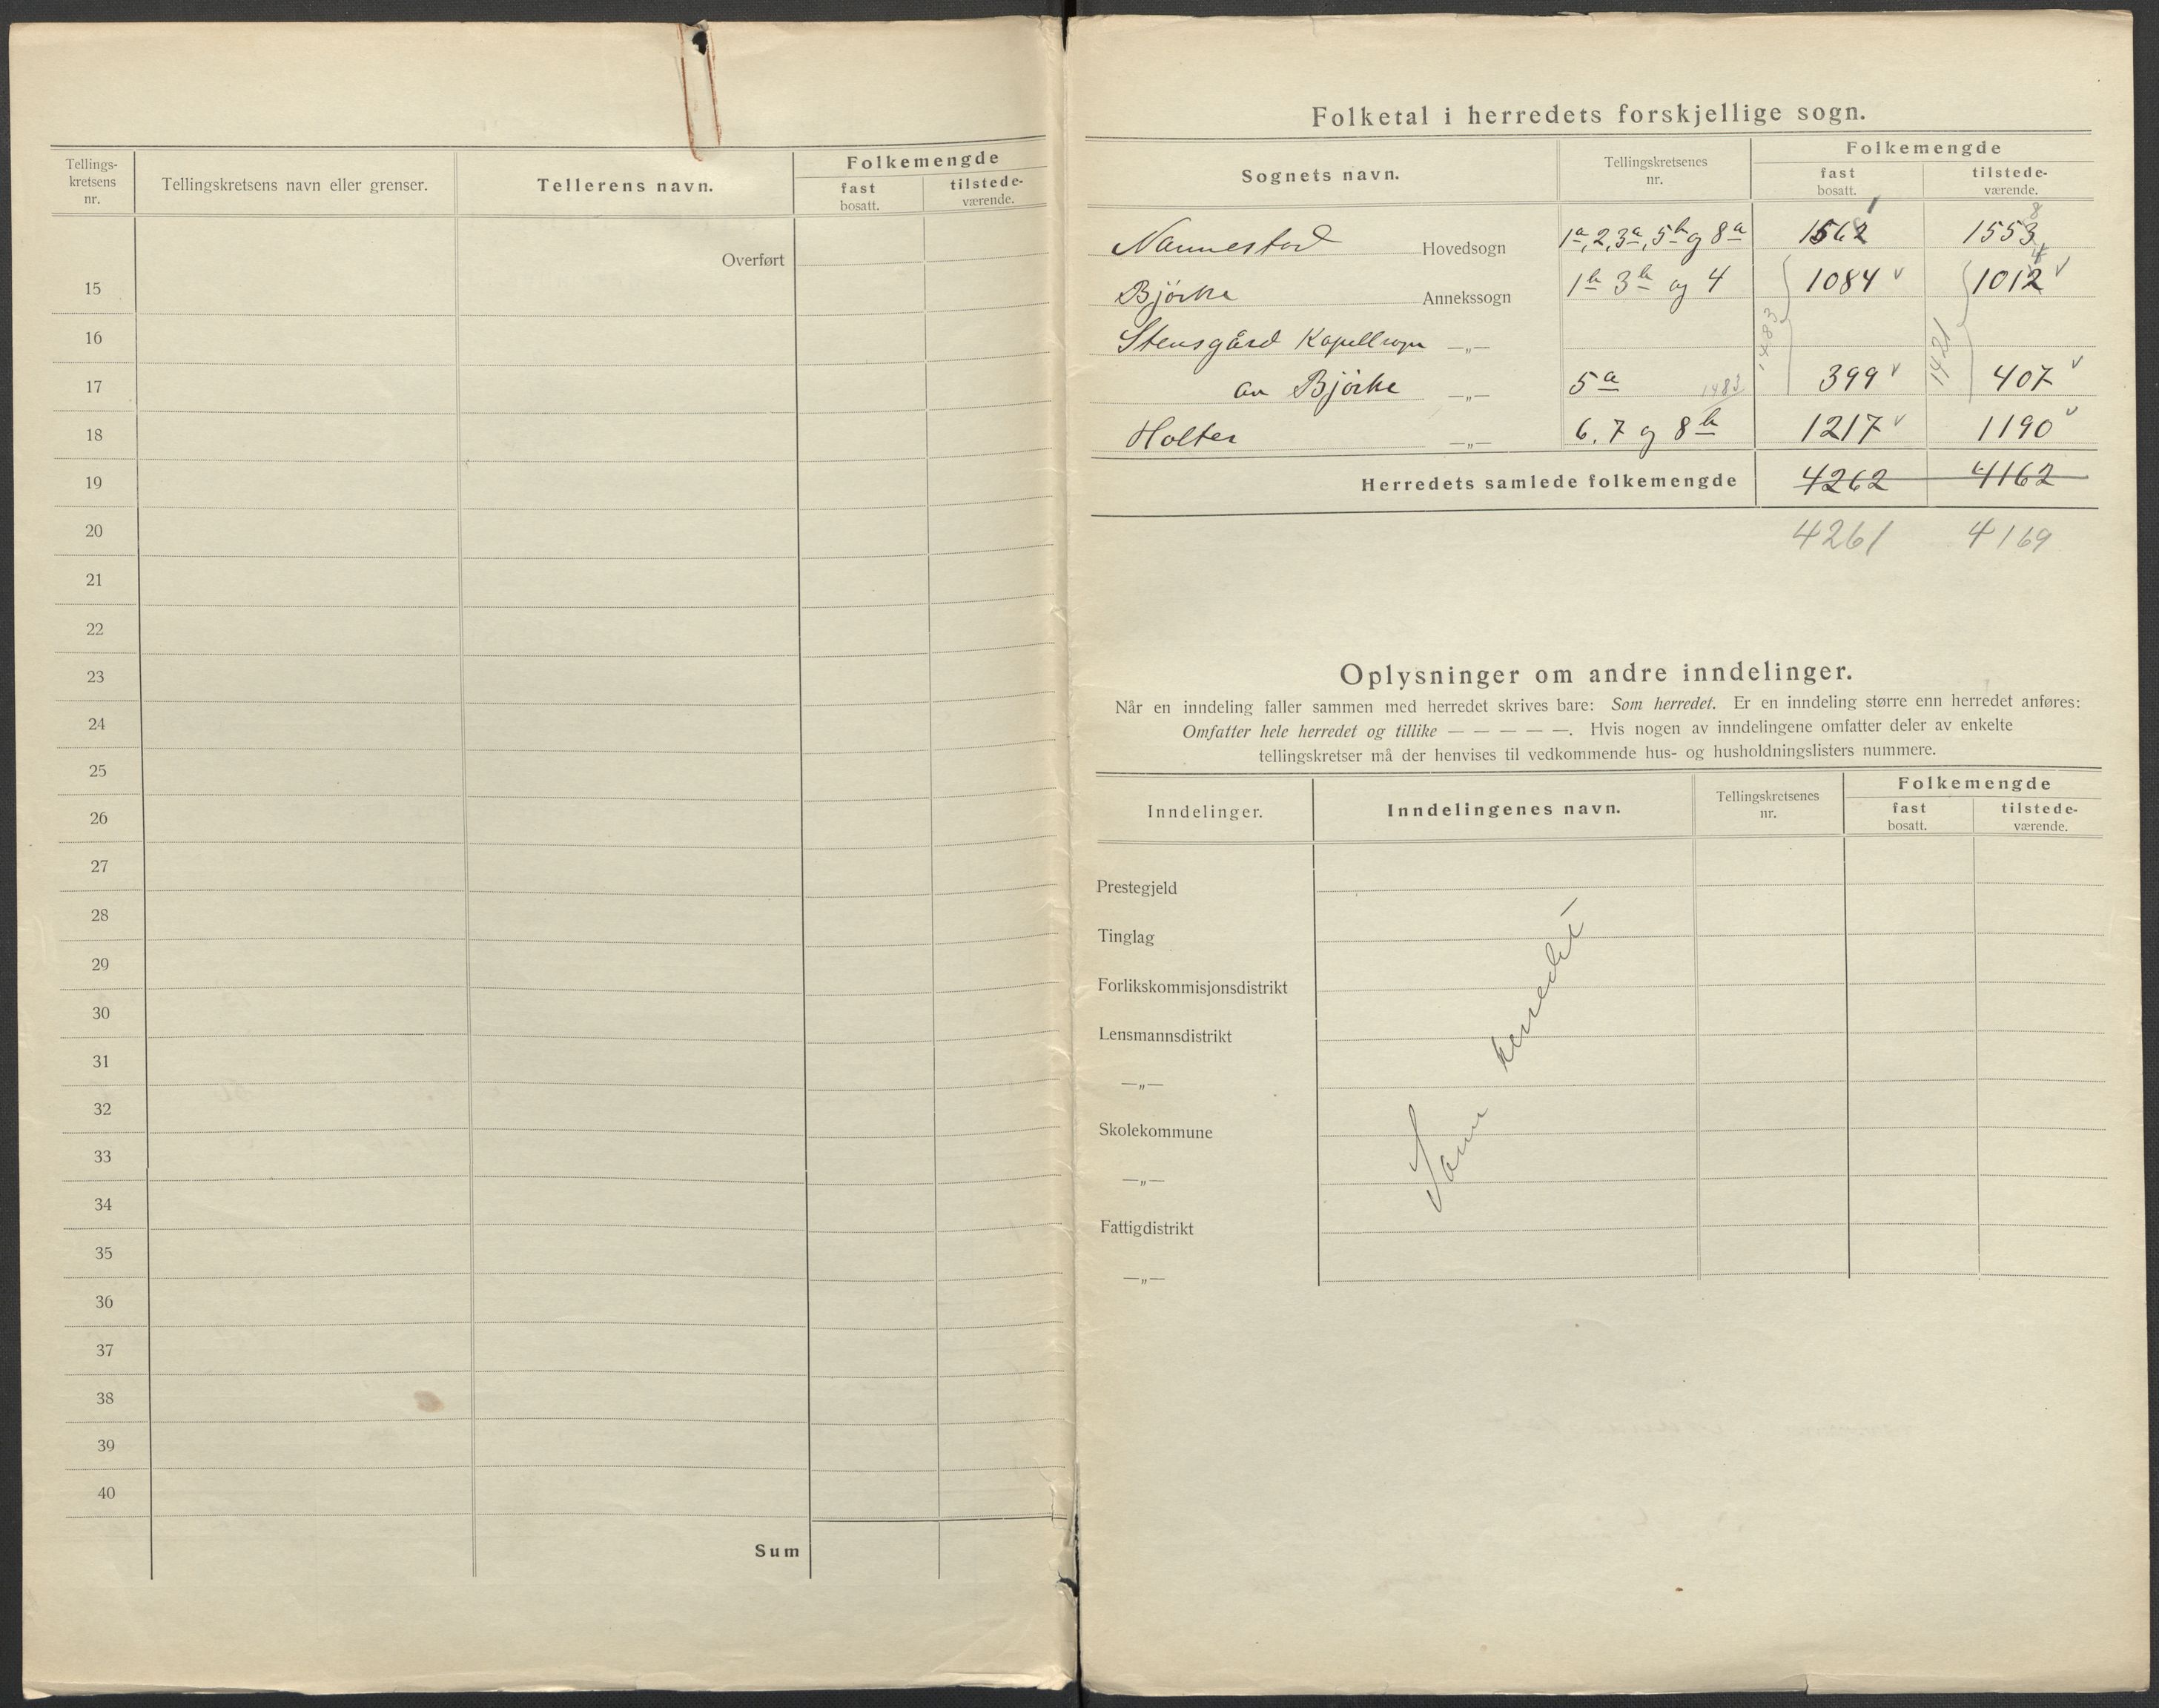 Tellings-
kretsens
nr.
Tellingskretsens navn eller grenser.
Tellerens navn.
Folkemengde
fast
bosatt.
tilstede-
værende.
Overført
15
16
17
18
19
20
21
22
23
24
25
26
27
28
29
30
31
32
33
34
35
36
37
38
39
40
Sum
Folketal i herredets forskjellige sogn.
Sognets navn.
Tellingskretsenes
nr.
Folkemengde
fast
bosatt.
tilstede-
værende.
1 8
Nannestad Hovedsogn 1a, 2, 3a, 5b og 8a 1562 1553
4
Bjørke Annekssogn 1b 3b og 4 1084 v 1012 v
Stensgård Kapellsogn —„— 1483 1421
av Bjørke —„— 5a 1483 399 v 407 v
Holter —„— 6, 7 og 8b 1217 v 1190 v
Herredets samlede folkemengde 4262 4162
4261 4169
Oplysninger om andre inndelinger.
Når en inndeling faller sammen med herredet skrives bare: Som herredet. Er en inndeling større enn herredet anføres:
Omfatter hele herredet og tillike — — — — —. Hvis nogen av inndelingene omfatter deler av enkelte
tellingskretser må der henvises til vedkommende hus- og husholdningslisters nummere.
Inndelinger.
Inndelingenes navn.
Tellingskretsenes
nr.
Folkemengde
fast
bosatt.
tilstede-
værende.
Prestegjeld
Tinglag
Forlikskommisjonsdistrikt
Lensmannsdistrikt
—„—
Skolekommune
—„—
Fattigdistrikt
—„—
Som herredet